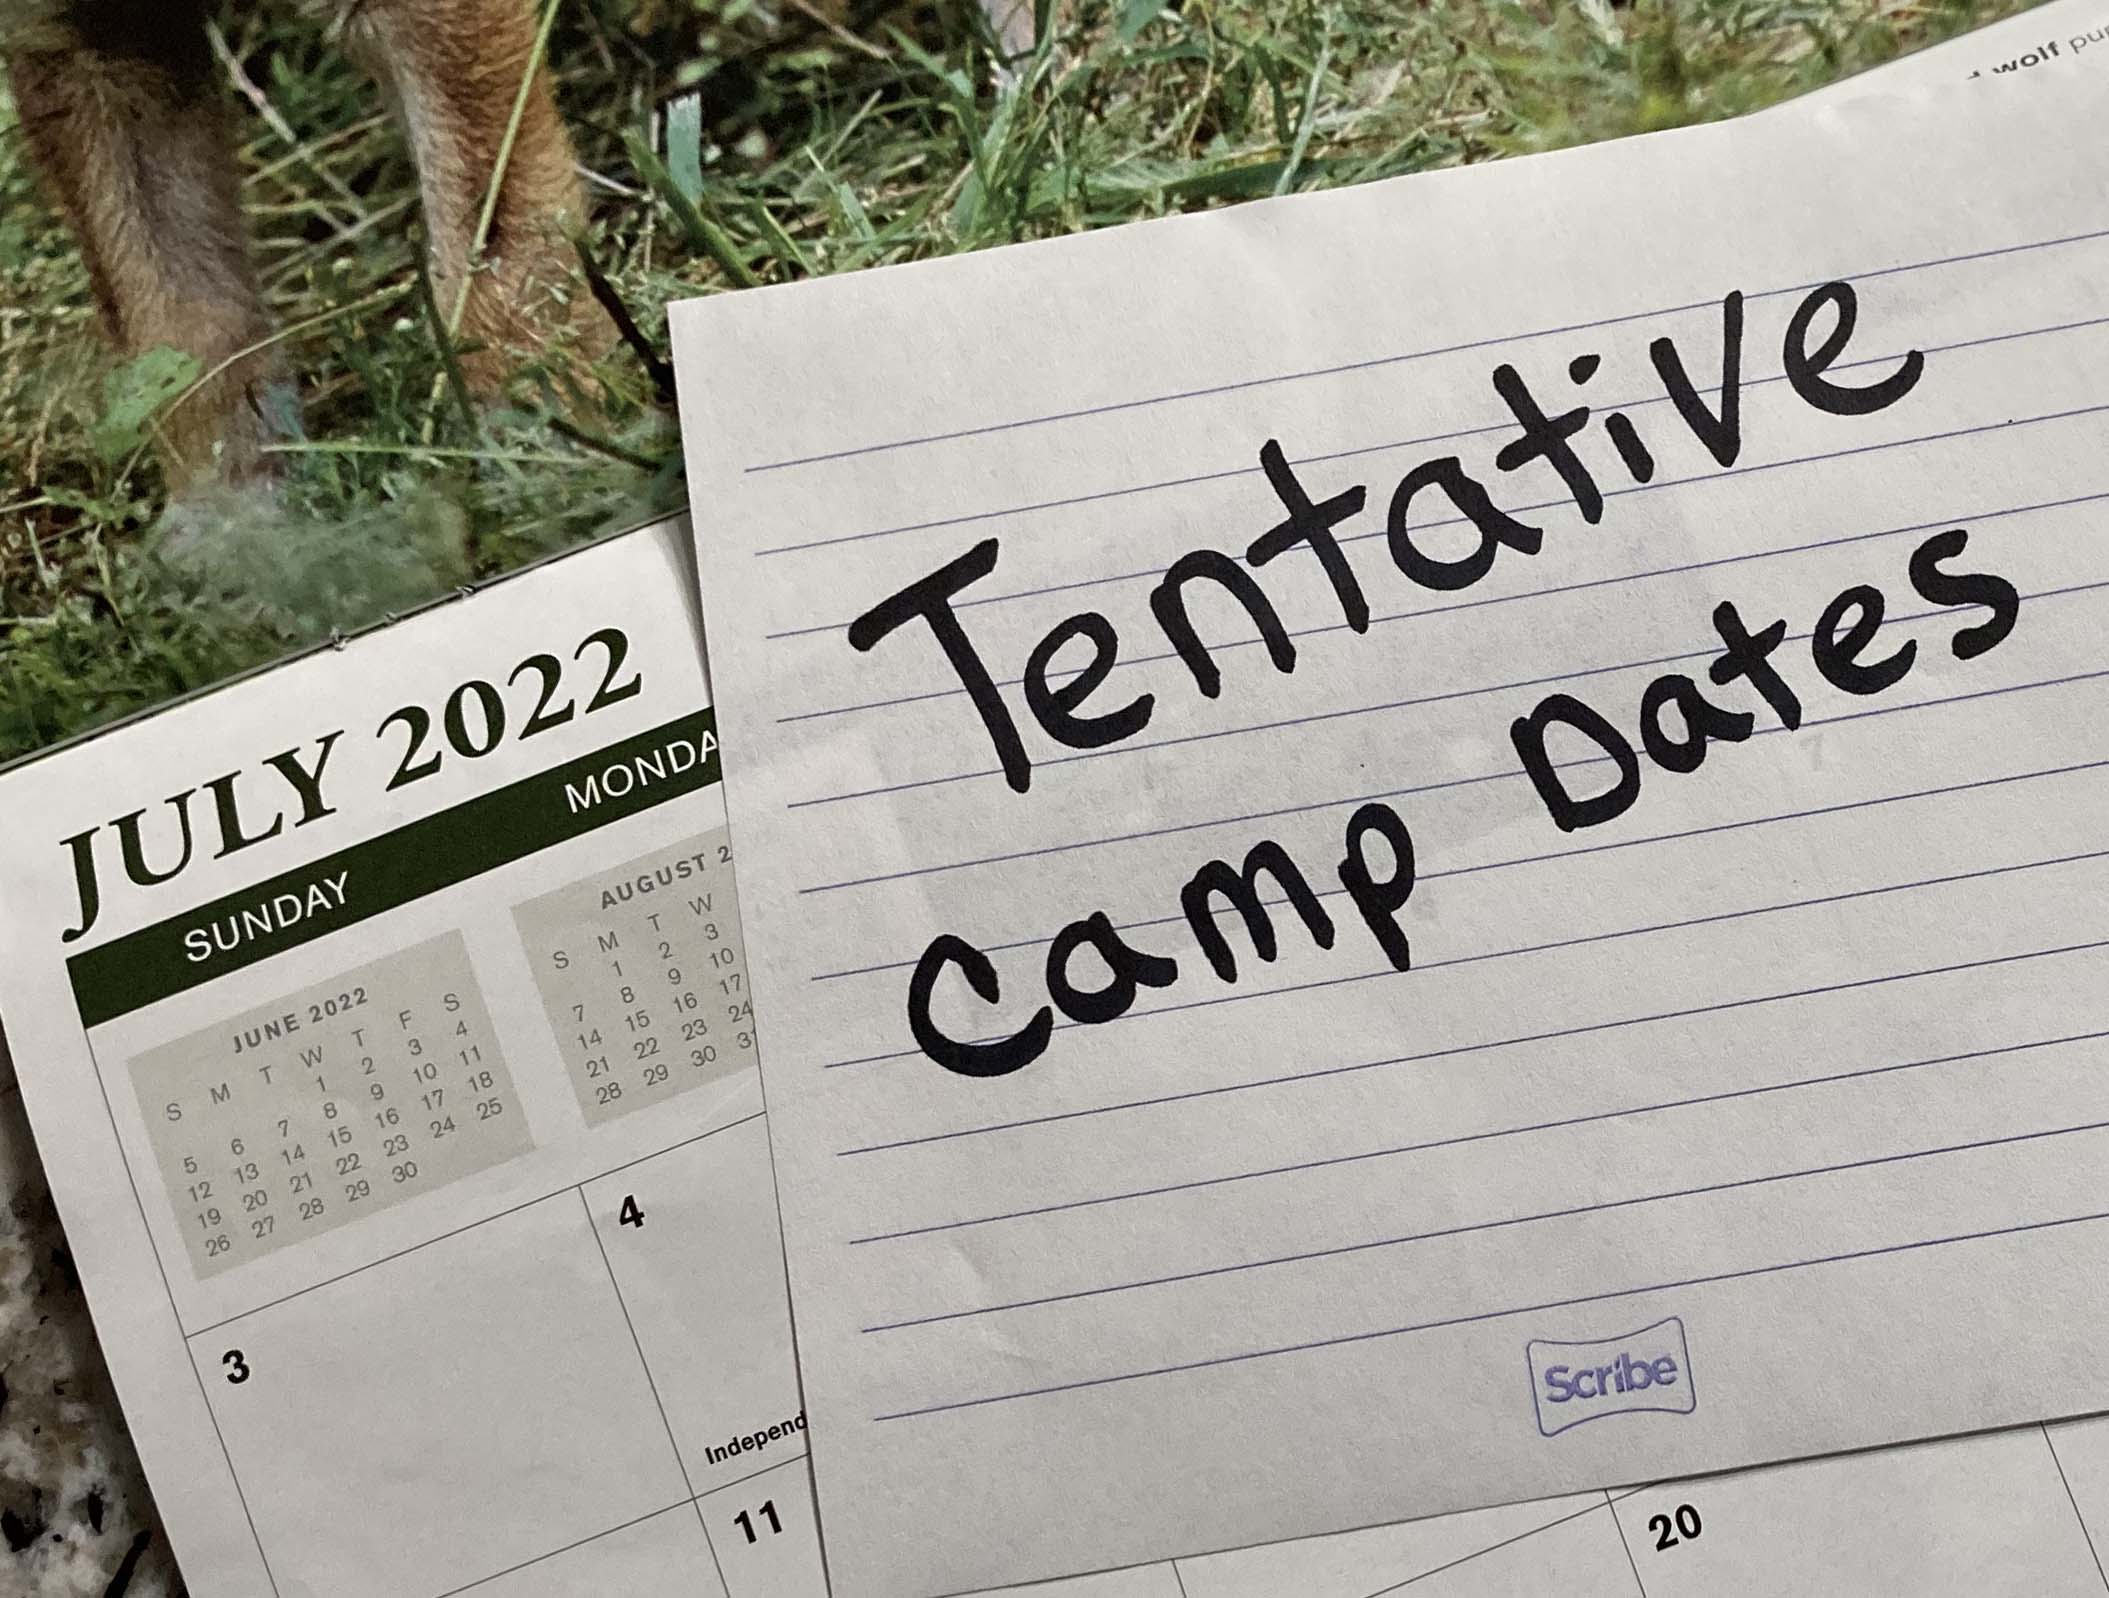 wolf
Tentative
Camp Dates
Scribe
JULY 2022
SUNDAY
JUNE 2022
S M T W T F S
1 2 3 4
5 6 7 8 9 10 11
12 13 14 15 16 17 18
19 20 21 22 23 24 25
26 27 28 29 30
AUGUST 2
S M T W
1 2 3
7 8 9 10
14 15 16 17
21 22 23 24
28 29 30 31
3
4
11
20